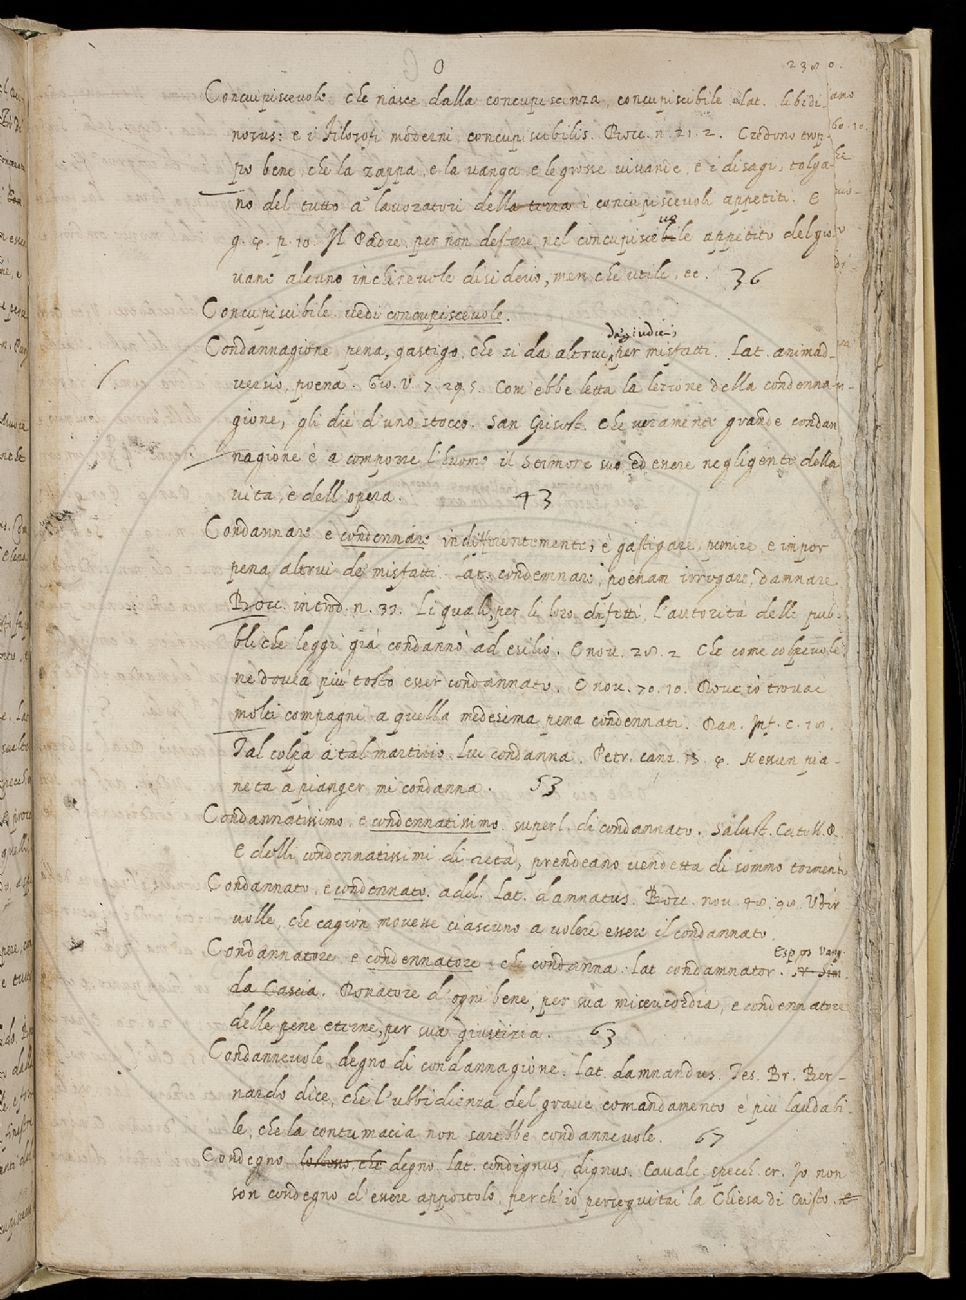 Concupiscevole che nasce dalla concupiscenza, concupiscibile Lat. libidi
nosus: e i filosofi moderni concupiscibilis. Bocc. n. 21. 2. Credono trop
po bene, che la zappa, e la vanga e le grosse vivande, e i disagi, tolga
no del tutto a' lavoratori della terra i concupiscevoli appetiti. E
g. 4. p. 10. Il Padre per non destare nel concupiscebile appetito del gio
vane alcuno inchinevole disiderio, men che utile, ec. 36
Concupiscibile vedi concupiscevole.
Condannagione pena, gastigo, che si da altrui da' giudici, per misfatti. Lat. animad-
versio, poena. Gio. V. 7. 295. Com' ebbe letta la lezione della condenna-
gione, gli diè d'uno stocco. San Grisost. Che veramente grande condan
nagione è a comporre l'huomo il Sermone suo, ed essere negligente della
vita, e dell' opera. 43
Condannare e condennare indifferentemente, è gastigare, punire, e impor
pena altrui de' misfatti. Lat. condemnare, poenam irrogare, damnare.
Bocc. introd. n. 33. Li quali, per li loro difetti, l'autorità delle pub-
bliche leggi già condannò ad esilio. E nov. 28. 2 Che come colpevole
ne dovea più tosto esser condannato. E nov. 70. 10. Dove io trovai
molti compagni a quella medesima pena condennati. Dan. Inf. c. 18.
Tal colpa a tal martirio lui condanna. Petr. canz. 13. 4. Nessun pia-
neta a pianger mi condanna. 53
Condannatissimo, e condennatissimo superl. di condannato. Salust. Catell. R.
E delli condennatissimi di reità, prendeano vendetta di sommo tormento
Condannato, e condennato. add. Lat. damnatus. Bocc. nov. 98. 48. Udir
volle, che cagion movesse ciascuno a volere essere il condannato.
Condannatore e condennatore che condanna. Lat condamnator. Espos Vang.
da Cascia. Donatore d'ogni bene, per sua misericordia, e condennatore
delle pene eterne, per sua giustizia. 63
Condannevole degno di condannagione. Lat. damnandus. Tes. Br. Ber-
nardo dice, che l'ubbidienza del grave comandamento è più laudabi-
le, che la contumacia non sarebbe condannevole. 67
Condegno che degno. Lat. condignus, dignus. Cavalc. specch. cr. Io non
son condegno d'essere appostolo, perch' io perseguitai la Chiesa di Cristo.